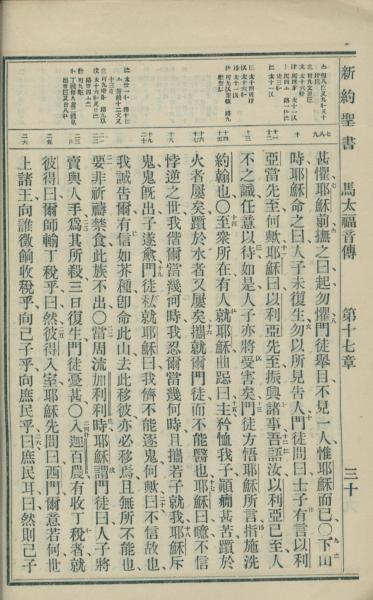 新約聖書 馬太福音傳 第十七章 三十
甚懼耶穌前撫之曰起勿懼門徒舉目不見一人惟耶穌而已〇下山
時耶穌命之曰人子未復生勿以所見告人門徒問曰士子有言以利
亞當先至何歟耶穌曰以利亞先至振興諸事吾語汝以利亞已至人
不之識任意以待如是人子亦將受害矣門徒方悟耶穌所言指施洗
約翰也〇至衆所在有人就耶穌曲跽曰主矜恤我子癲癇甚苦躓於
火者屢矣躓於水者又屢矣攜就爾門徒而不能醫也耶穌曰噫不信
悖逆之世我偕爾當幾何時我忍爾當幾何時且攜若子就我耶穌斥
鬼鬼旣出子遂愈門徒私就耶穌曰我儕不能逐鬼何歟曰不信故也
我誠告爾有信如芥種卽命此山去此移彼亦必移焉且無所不能也
要非祈禱禁食此族不出〇當周流加利利時耶穌謂門徒曰人子將
賣與人手爲其所殺三日復生門徒憂甚〇入迦百農有收丁稅者就
彼得曰爾師輸丁稅乎曰然彼得入室耶穌先問曰西門爾意若何世
上諸王向誰徵餉收稅乎向己子乎向庶民乎曰庶民耳曰然則己子